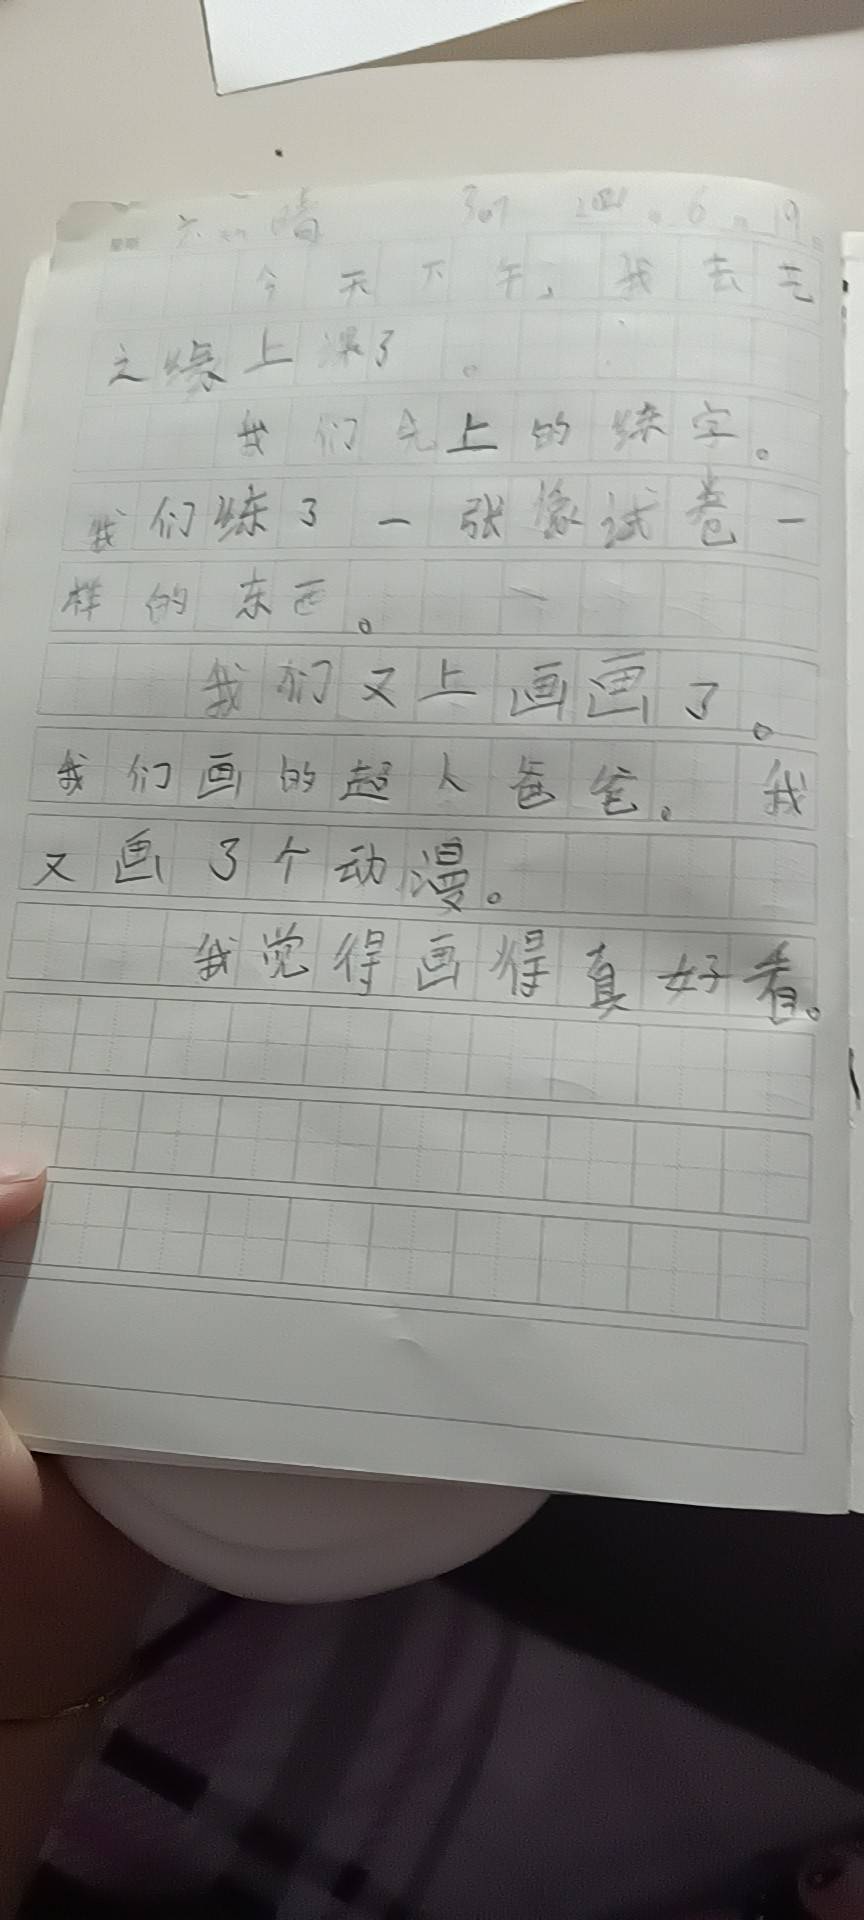 星期 六 晴 6 19
今天下午，我去艺
之缘上课了。
我们先上的练字。
我们练了一张像试卷一
样的东西。
我们又上画画了。
我们画的超人爸爸。我
又画了个动漫。
我觉得画得真好看。